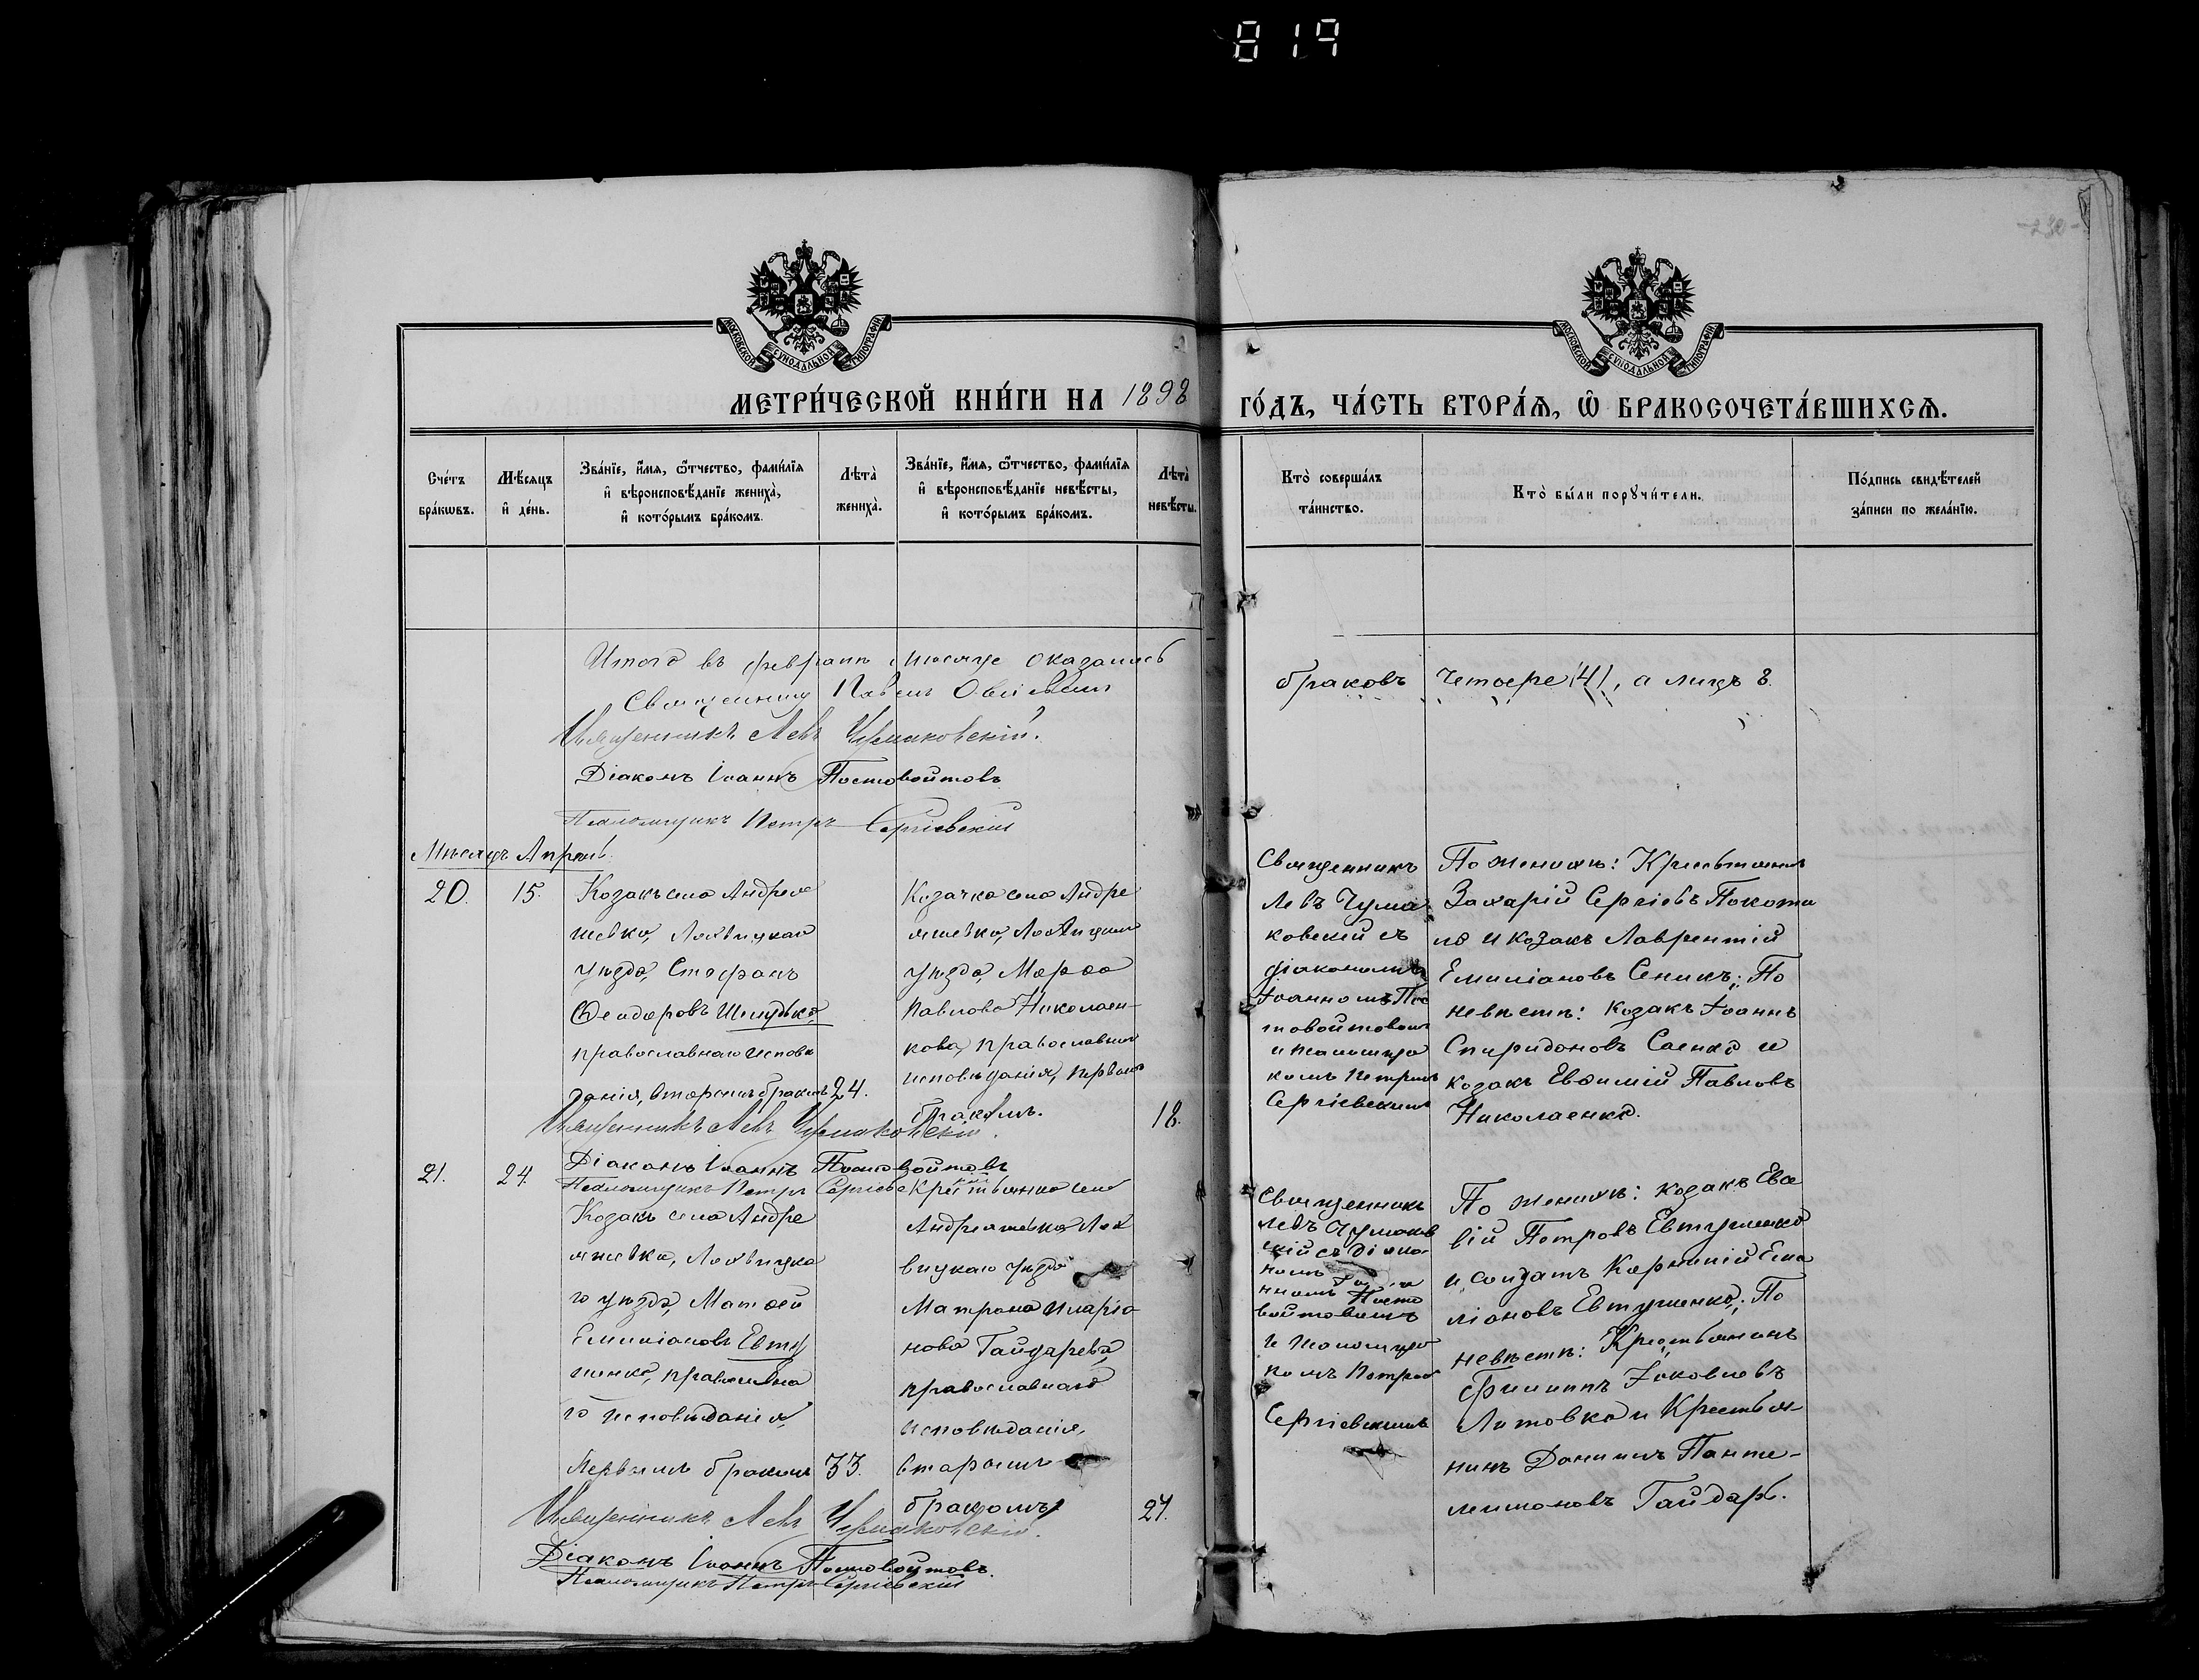 819
МОСКОВСКОЙ СѴНОДАЛЬНОЙ ТИПОГРАФІИ
МОСКОВСКОЙ СѴНОДАЛЬНОЙ ТИПОГРАФІИ
МЕТРИ́ЧЕСКОЙ КНИ́ГИ НА 1898
ГО́ДЪ, ЧА́СТЬ ВТОРА́Я, Ѽ БРАКОСОЧЕТА́ВШИХСЯ.
Сче́тъ бра́кѡвъ.
Мѣ́сяцъ и҆ де́нь.
Зва́нїе, и҆́мя, ѻ҆́тчество, фами́лїя
и҆ вѣроисповѣ́данїе жениха̀,
и҆ кото́рымъ бра́комъ.
Лѣта̀ жениха̀.
Зва́нїе, и҆́мя, ѻ҆́тчество, фами́лїя
и҆ вѣроисповѣ́данїе невѣ́сты,
и҆ кото́рымъ бра́комъ.
Лѣта̀ невѣ́сты.
Кто̀ соверша́лъ
та́инство.
Кто̀ бы́ли порꙋчи́тели.
По́дпись свидѣ́телей
за́писи по жела́нїю.
Итого въ февралѣ мѣсяцѣ оказалось
браковъ четверо (4), а лицъ 8.
Священникъ Павелъ
Священникъ Левъ Чумаковскій.
Діаконъ Іоаннъ Постовойтовъ
Псаломщикъ Петръ Сергіевскій
Мѣсяцъ Апрель
20. 15.
Козакъ села Андрея
шевки, Лохвицкаго
уѣзда, Стефанъ
Ѳеодоровъ Шелудько,
православнаго исповѣ
данія, вторымъ бракомъ 24.
Козачка села Андре
яшевки, Лохвицкаго
уѣзда, Марѳа
Павлова Николаен-
кова, православнаго
исповѣданія, первымъ
бракомъ. 18.
Священникъ
Левъ Чума
ковскій съ
діакономъ
Іоанномъ Пос
товойтовымъ
и псаломщи
комъ Петромъ
Сергіевскимъ
По женихѣ: Крестьянинъ
Захарій Сергіевъ Покоти
ло и козакъ Лаврентій
Емиліановъ Сеникъ; По
невѣстѣ: козакъ Іоаннъ
Спиридоновъ Саенко и
козакъ Евѳимій Павловъ
Николаенко.
Священникъ Левъ Чумаковскій.
Діаконъ Іоаннъ Постовойтовъ
Псаломщикъ Петръ Сергіевскій
21. 24.
Козакъ села Андре
яшевки, Лохвицка
го уѣзда, Матѳей
Емиліановъ Евту
шенко, православна
го исповѣданія,
первымъ бракомъ 33.
Крестьянка села
Андреяшевки, Лох
вицкаго уѣзда
Матрона Иларіо-
нова Гайдарева,
православнаго
исповѣданія,
вторымъ
бракомъ 27.
Священникъ
Левъ Чумаков
скій съ діако-
номъ Іоа
нномъ Посто
войтовымъ
и псаломщи
комъ Петромъ
Сергіевскимъ
По женихѣ: козакъ Евѳ
вій Петровъ Евтушенко
и солдатъ Корнилій Еми
ліановъ Евтушенко; По
невѣстѣ: Крестьянинъ
Филиппъ Іаковлевъ
Литовка и Крестья-
нинъ Даниилъ Панте-
леимоновъ Гайдаръ.
Священникъ Левъ Чумаковскій.
Діаконъ Іоаннъ Постовойтовъ.
Псаломщикъ Петръ Сергіевскій